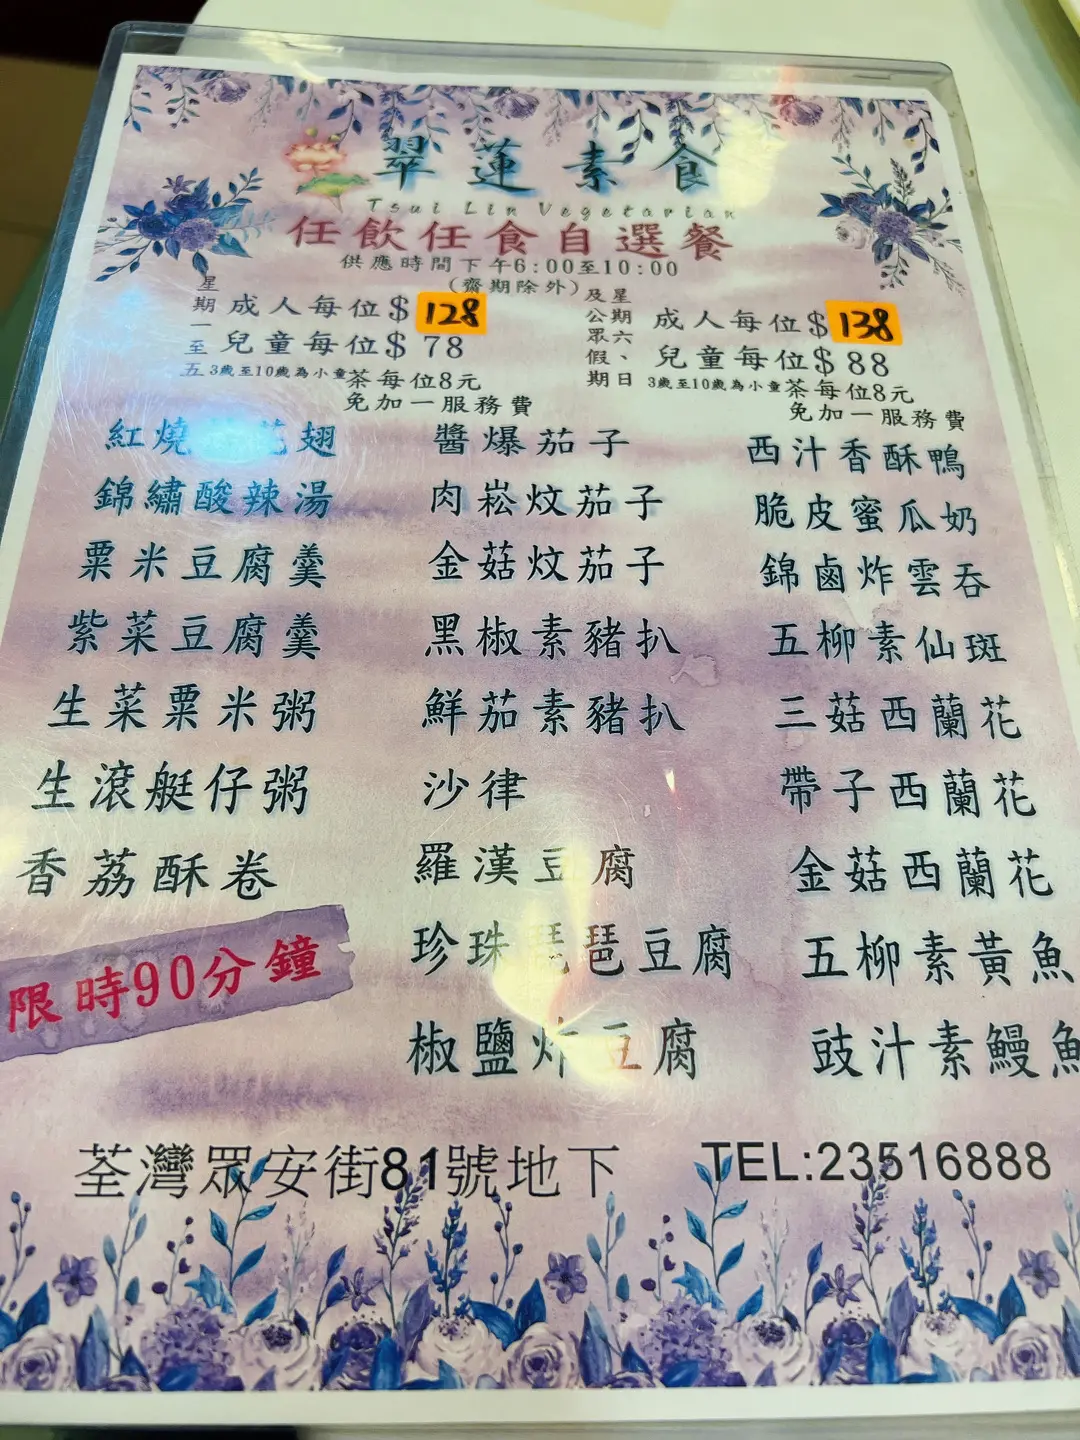 翠蓮素食
Tsui Lin Vegetarian
任飲任食自選餐
供應時間下午6:00至10:00
(齋期除外)
星期一至五
成人每位$128
兒童每位$78
3歲至10歲為小童
茶每位8元
免加一服務費
星期六、日
及公眾假期
成人每位$138
兒童每位$88
3歲至10歲為小童
茶每位8元
免加一服務費
紅燒花翅
錦繡酸辣湯
粟米豆腐羹
紫菜豆腐羹
生菜粟米粥
生滾艇仔粥
香荔酥卷
限時90分鐘
醬爆茄子
肉崧炆茄子
金菇炆茄子
黑椒素豬扒
鮮茄素豬扒
沙律
羅漢豆腐
珍珠琵琶豆腐
椒鹽炸豆腐
西汁香酥鴨
脆皮蜜瓜奶
錦鹵炸雲吞
五柳素仙斑
三菇西蘭花
帶子西蘭花
金菇西蘭花
五柳素黃魚
豉汁素鰻魚
荃灣眾安街81號地下
TEL:23516888